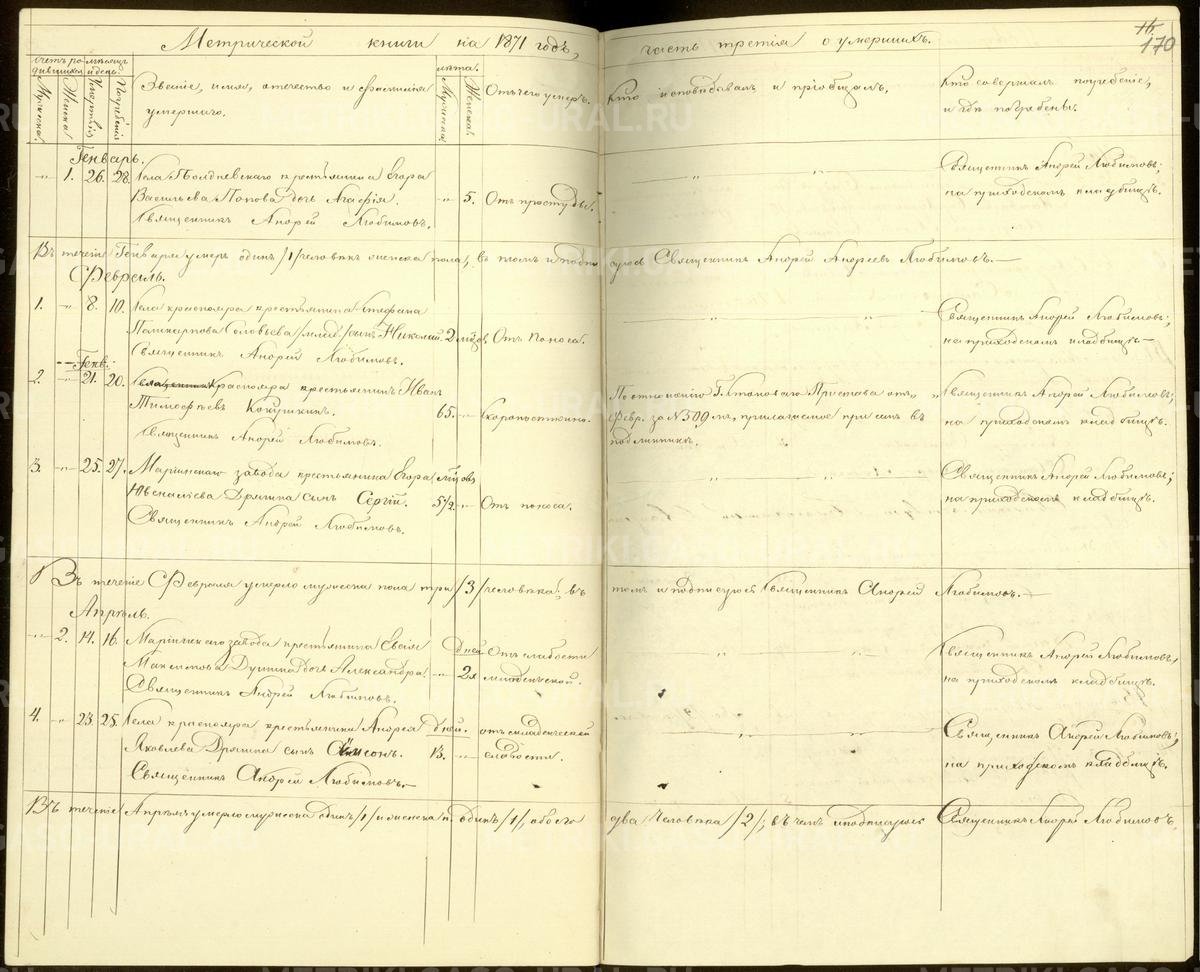 Метрической книги на 1871 годъ,
часть третія о умершихъ.
170
Счетъ ро
дившихся
Мужеска.
Женска
мѣсяцъ
и день.
Умертвія
Погребенія
Званіе, имя, отчество и фамилія
умершаго.
лѣта.
Мужеска
Женска.
Отъ чего умеръ.
Кто исповѣдывалъ и пріобщалъ.
Кто совершалъ погребеніе,
и гдѣ погребены.
Генварь.
1. 26. 28. Села Полдневскаго крестьянина Егора
Васильева Попова дочь Агафія. 5. Отъ простуды.
Священникъ Андрей Любимовъ.
Священникъ Андрей Любимовъ;
на приходскомъ кладбищѣ.
Въ теченіе Генваря умеръ одинъ /1/ человѣкъ женска пола, въ томъ и подпи
суюсь Священникъ Андрей Андреевъ Любимовъ.
Февраль.
1. 8. 10. Села краснояра крестьянина Стефана
Поликарпова Соловьева /млад./ сынъ Николай. 2 мѣ. Отъ Поноса.
Священникъ Андрей Любимовъ.
Священникъ Андрей Любимовъ;
на приходскомъ кладбищѣ.
Генв.
2. 21. 20. Краснояра крестьянинъ Иванъ
Тимофѣевъ Кокушкинъ. 65. Скоропостижно.
Священникъ Андрей Любимовъ.
По отношенію Г. Становаго Пристава отъ
Февр. за № 309 мъ, прилагаемое при семъ въ
подлинникѣ.
Священникъ Андрей Любимовъ;
на приходскомъ кладбищѣ.
3. 25. 27. Маріинскаго завода крестьянина Егора мѣсяцовъ
Дрягина сынъ Сергій. 5½. Отъ поноса.
Священникъ Андрей Любимовъ.
Священникъ Андрей Любимовъ;
на приходскомъ кладбищѣ.
Въ теченіе Февраля умерло мужеска пола три /3/ человѣка; въ
томъ и подписуюсь Священникъ Андрей Любимовъ.
Апрѣль.
2. 14. 16. Маріинскаго завода крестьянина Евсія дней Отъ слабости
Максимова дочь Александра. 2я младенческой.
Священникъ Андрей Любимовъ.
Священникъ Андрей Любимовъ,
на приходскомъ кладбищѣ.
4. 23. 25. Села краснояра крестьянина Андрея дней. отъ младенческой
Яковлева Дрягина сынъ Самсонъ. 13. слабости.
Священникъ Андрей Любимовъ.
Священникъ Андрей Любимовъ;
на приходскомъ кладбищѣ.
Въ теченіе Апрѣля умерло мужеска одинъ /1/ и женска п. одинъ /1/, обоего
два человѣка /2/; въ чемъ и подписуюсь Священникъ Андрей Любимовъ.